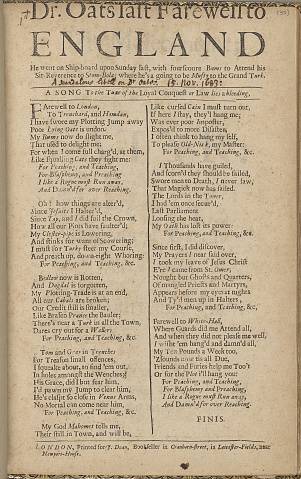 Dr. Oats last Farewell to
ENGLAND
He went on Ship-board upon Sunday last, with fourscore Bums to Attend his
Sir-Reverence to Stam-Bola; where he's a going to be Mufty to the Grand Turk.
15. Nov. 1683.
A SONG To the Tune of
FArewell to London,
To Treachard, and Hamdan,
I have swore my Plotting Jump away
Poor Lying Oats is undon.
My Bums now do slight me,
That used to delight me:
For when I come full charg'd, at them,
Like Flinching Cats they fight me:
For Peaching, and Teaching,
For Blasphemy, and Preaching
I like a Rogue must Run away,
And Damn'd for ever Reaching.
Oh! how things are alter'd,
Since I left and did fail the Crown,
And stinks for want of
I must for Turky steer my Course,
And preach up, down-right Whoring:
For Peaching, and Teaching, &c.
Bedlow now is Rotten,
And Dugdale is forgotten,
My Plotting-Trade is at an end,
All our Cabals are broken;
Our Credit still is smaller,
Like Brazen Brawn the Bauler;
There's near a Turk in all the Town,
Dares cry out for a
For Peaching, and Teaching, &c.
Tom and Gray in Trenches
For Treason small offences,
I squeake about, to find 'em out,
In holes amongst the Wenches;
His Grace, did I but fear him,
I'd pawn my Jump to clear him,
He's clasp't so close in Venus Arms,
No Mortal can come near him,
For Peaching, and Teaching, &c.
My God Mahomet tells me,
Their still in Town, and will be,
Like cursed Cain I must turn out,
If here I stay, they'll hang me;
Was ever poor Impostor,
Expos'd to more Disaster,
I often think to hang my self,
To please Old-Nick, my Master:
For Peaching, and Teaching, &c.
I Thousands have guiled,
And scorn'd they should be failed,
Swore men to Death, I never saw,
That Magick now has failed.
The Lords in the Tower,
I had 'em once secur'd,
Last Parliament
Loosing the beat,
My Oath has lost its power:
For Peaching, and Teaching, &c.
Since first, I did discover,
My Prayers I near said over,
I took my leave of Jesus Christ
E're I came from St. Omers;
Nought but Ghosts and Quarters,
Of mangled Priests and Martyrs,
Appears before my eye at nights
And Ty'd men up in Halters,
For Peaching, and Teaching, &c.
Farewell to White-Hall,
Where Guards did me Attend all,
And when they did not please me well,
I wisht 'em hang'd and damn'd all,
My Ten Pounds a Week too,
'T Confounds our Sis all Due,
Friends and Furies help me Too't
Or for the Pox I'll hang you:
For Peaching, and Teaching,
For Blasphemy and Preaching,
I like a Rogue must Run away,
And Damn'd for ever Reaching.
FINIS.
LONDON, Printed for J. Dean, Bookseller in Cranborn-street, in Leicester-Fields, near
Newport-House.